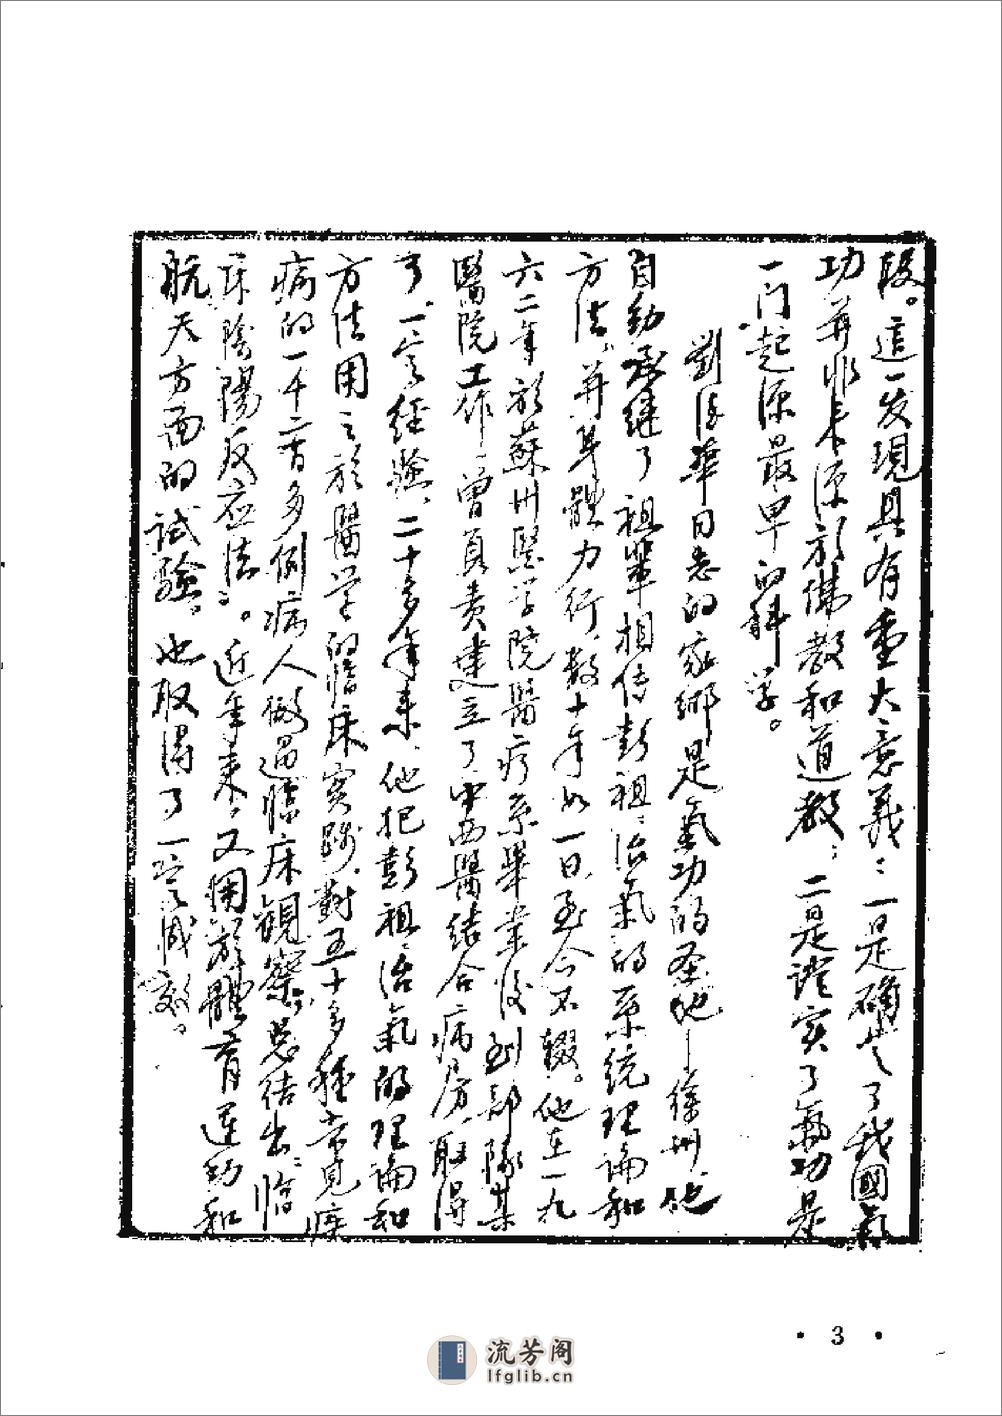 段。這一发現具有重大意義：一是确定了我國氣
功并非来源於佛教和道教；二是證实了氣功是
一门起源最早的科学。
劉佳華同志的家鄉是氣功的圣地—徐州，他
自幼承继了祖辈相传彭祖治氣的系统理論和
方法，并身體力行，数十年如一日，至今不辍。他在一九
六二年於蘇州医学院醫疗系畢業後到部隊某
醫院工作，曾負责建立了中西醫结合病房，取得
了一定经驗。二十多年来，他把彭祖治氣的理論和
方法用之於醫学的临床实踐，對五十多種常见疾
病的一千二百多例病人做過临床觀察，总结出“临
床陰陽反应法”。近年来，又用於體育运动和
航天方面的试验，也取得了一定成效。
• 3 •
流芳阁
lfglib.cn